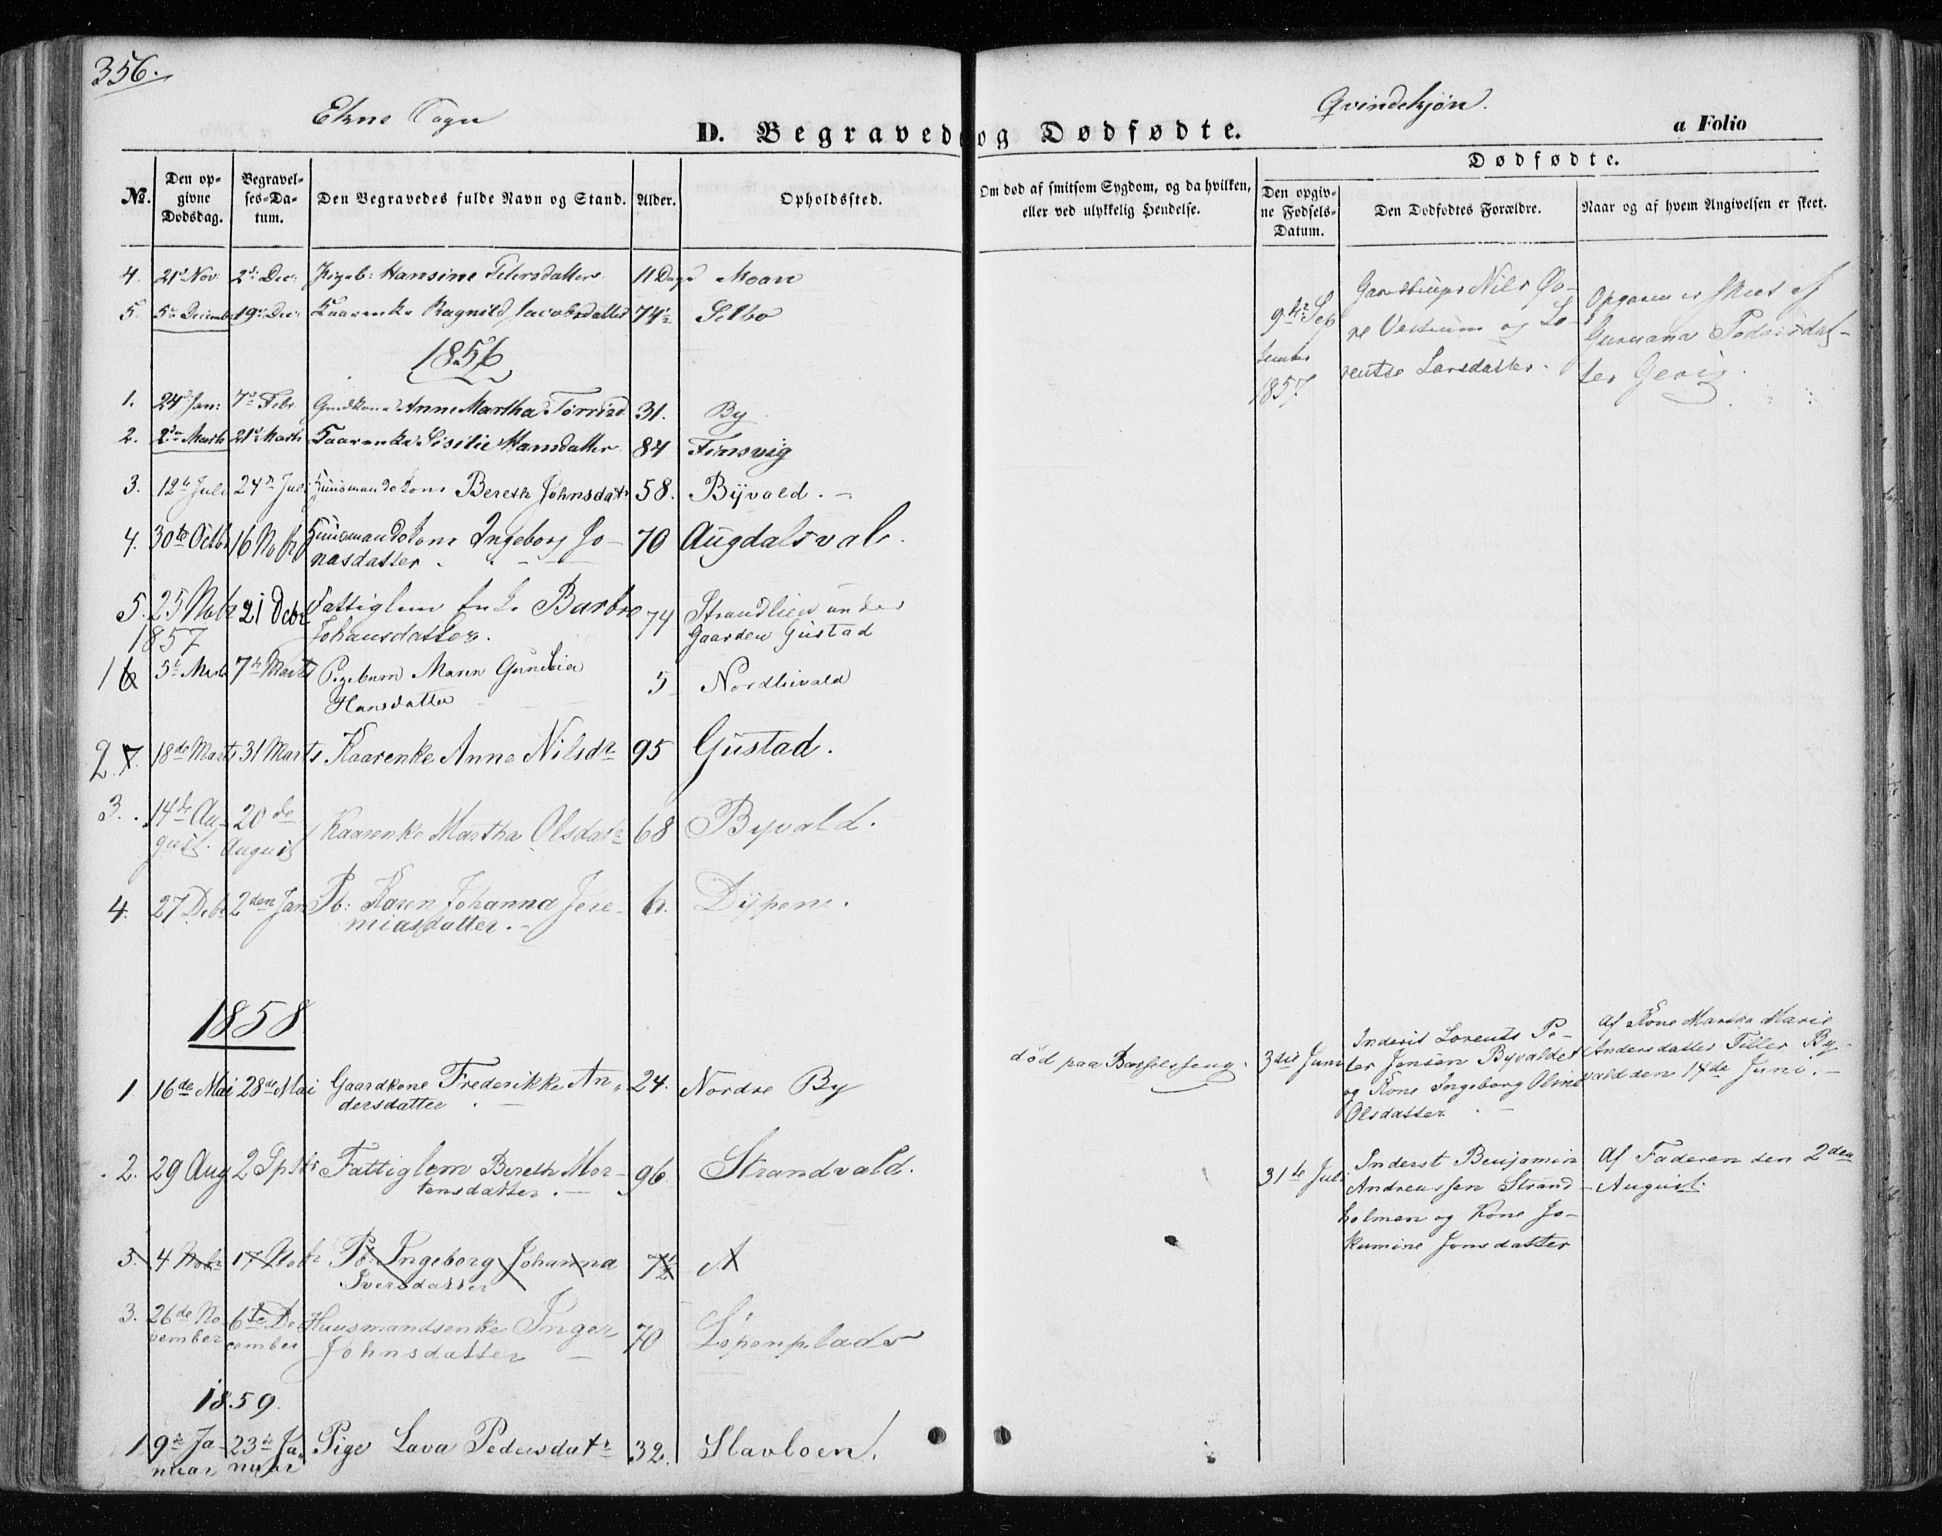 356.
Ekne Sogn
Qvindekjøn.
D. Begravede og Dødfødte.
a Folio
Dødfødte.
No.
Den opgivne Dødsdag.
Begravelses-Datum.
Den Begravedes fulde Navn og Stand.
Alder.
Opholdssted.
Om død af smitsom Sygdom, og da hvilken, eller ved ulykkelig Hendelse.
Den opgivne Fødsels-Datum.
Den Dødfødtes Forældre.
Naar og af hvem Angivelsen er skeet.
4. 21 Nov 2 Dec: Pigeb: Hansine Petersdatter 11 Dage Moan
5. 5 Decemb 19 Dec: Kaarenke Ragnild Jacobsdatter 74½ Selbo
9de September 1857
Nils
og Lorentse Larsdatter.
er skeet af
Pedersdatter
1856
1. 24 Jan: 7 Febr Anne Martha 31. By
2. 2 Marts 21 Marts Kaarenke Sisilie Hansdatter 84 Finsvig
3. 12 Juli 24 Juli Huusmandskone Bereth Johnsdatr 58. Byvald.
4. 30te Octbr 16 Nobr Huusmandskone Ingeborg Jo-
nasdatter. 70 Augdalsvald.
5. 25 Nobr 21 Debr Fattiglem Enke Barbro
Johansdatter. 74 Strandlien under
Gaarden Gustad
1857
1 6 5 Marts 7 Marts Pigebarn Maren
Hansdatter 5 Nordlivald
2. 7. 18de Marts 31 Marts Kaarenke Anne Nilsdr 95 Gustad.
3. 14de August 20de August Kaarenke Martha Olsdatr 68 Byvald.
4. 27 Debr 2den Jan Pb: Karen Johanna Jere-
miasdatter. 6. Dypen.
1858
1 16de Mai 28de Mai Gaardkone Frederikke An-
dersdatter 24. Nordre By
død paa Barselseng.
3die Juni
Inderst Lorents Pe-
ter Jensen Byvaldet
og Kone Ingeborg Oline
Olsdatter
Af Kone Martha Marie
Andersdatter Tiller By-
vald den 14de Juni.
2. 29 Aug 2 Sptbr Fattiglem Bereth Mor-
tensdatter. 96 Strandvald.
31te Juli
Inderst Benjamin
Andreassen Strand-
holmen og Kone Jo-
kumine Jonsdatter
Af Faderen den 2den
August.
3. 4 Nobr 17 Nobr Pb Ingeborg Johanna
Iversdatter 7½ A
3. 26de No-
vember 6te De-
cember Huusmandsenke Inger
Johnsdatter 70 Lopenplads
1859.
1. 9de Ja-
nuar 23de Ja-
nuar Pige Lava Pedersdatr 32. Slavloen.